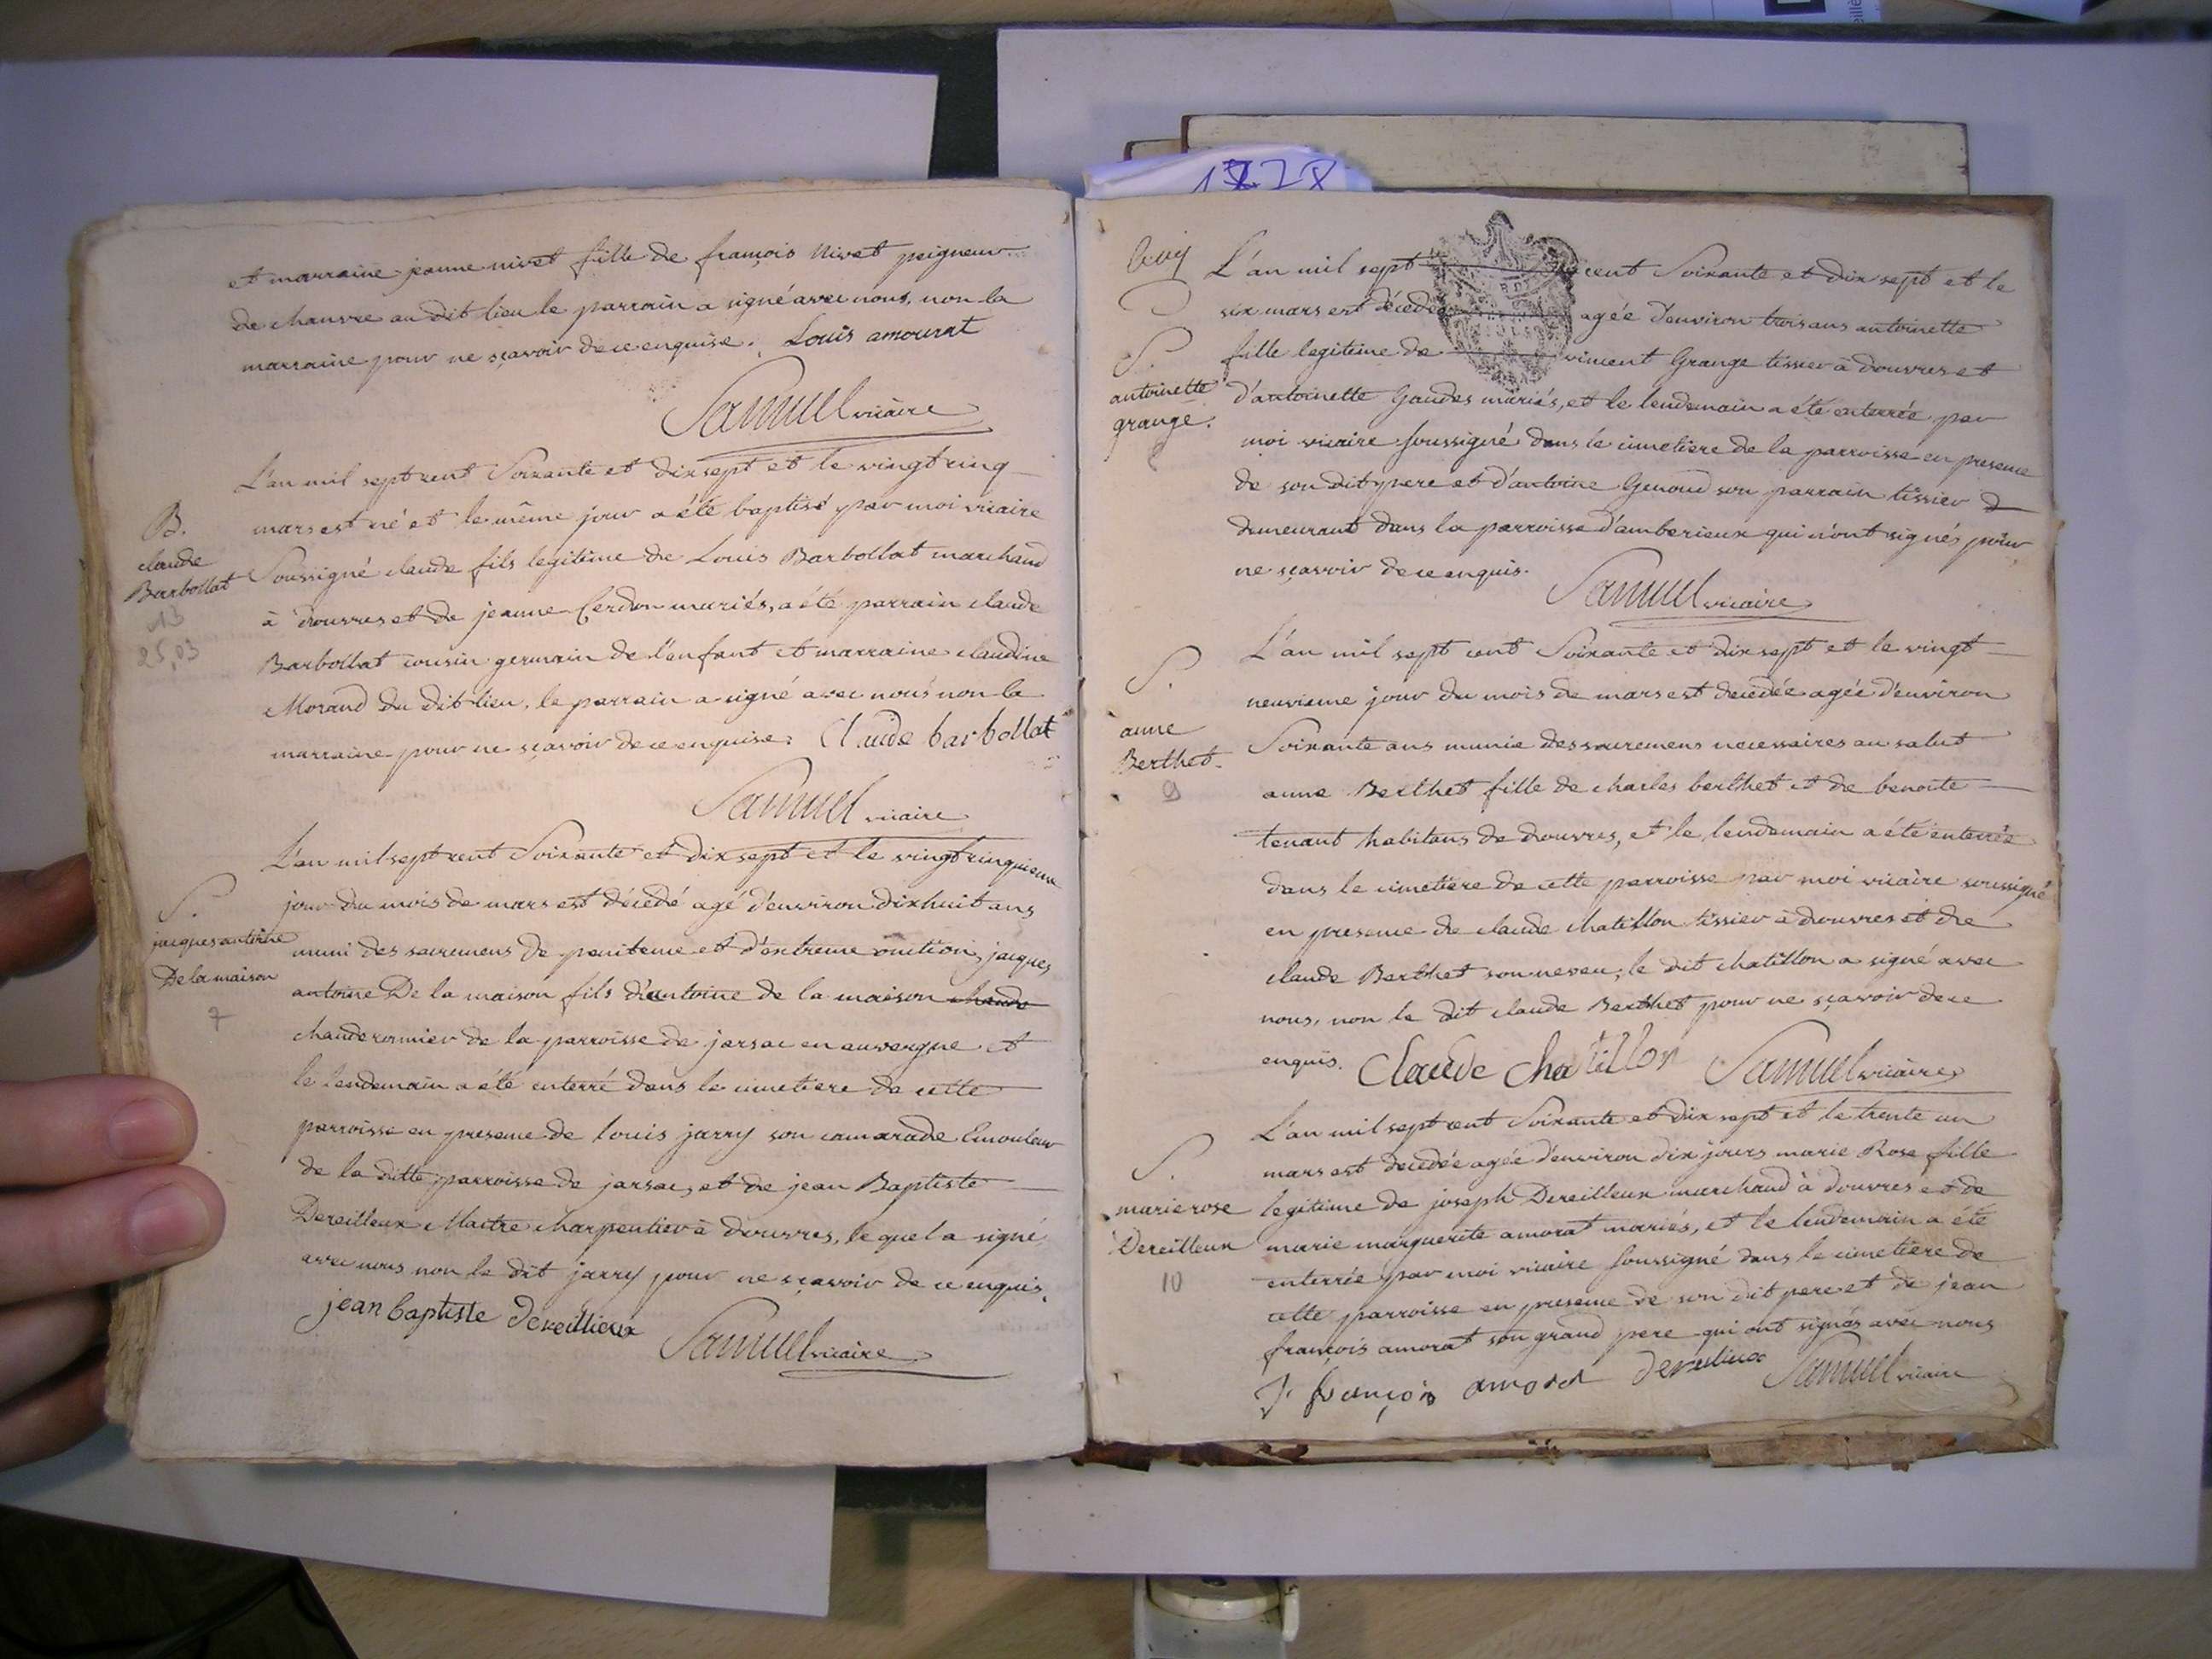 et marraine jeanne nivet fille de françois Nivet peigneur
de chanvre au dit lieu le parrain a signé avec nous, non la
marraine pour ne sçavoir de ce enquise. Louis amourat
Samuel vicaire
L'an mil sept cent Soixante et dix sept et le vingt cinq
mars est né et le même jour a été baptisé par moi vicaire
Soussigné claude fils legitime de Louis Barbollat marchand
à douvres et de jeanne Cerdon mariés, a été parrain claude
Barbollat cousin germain de l'enfant et marraine claudine
Morand du dit lieu, le parrain a signé avec nous non la
marraine pour ne sçavoir de ce enquise. Claude barbollat
Samuel vicaire
B.
claude
Barbollat
13
25,03
L'an mil sept cent Soixante et dix sept et le vingt cinquieme
jour du mois de mars est décedé agé d'environ dixhuit ans
muni des sacremens de penitence et d'extreme onction, jacques
antoine De la maison fils d'antoine de la maison chaudr
chauderonnier de la parroisse de jarsac en auvergne et
le lendemain a été enterré dans le cimetiere de cette
parroisse en presence de louis jarry son camarade Emouleur
de la ditte parroisse de jarsac, et de jean Baptiste
Dereilleux Maitre charpentier à douvres, le quel a signé
avec nous non le dit jarry pour ne sçavoir de ce enquis.
jean baptiste dereillieux Samuel vicaire
S.
jacques antoine
De la maison
7
1778
L'an mil sept cent Soixante et dix sept et le
six mars est décedée agée d'environ trois ans antoinette
fille legitime de vincent Grange tissier à douvres et
d'antoinette Gaudes mariés, et le lendemain a été enterrée par
moi vicaire soussigné dans le cimetiere de la parroisse en presence
de son dit pere et d'antoine Genoud son parrain tissier
demeurant dans la parroisse d'amberieux qui n'ont signés pour
ne sçavoir de ce enquis.
Samuel vicaire
S.
antoinette
grange.
8
L'an mil sept cent Soixante et dix sept et le vingt
neuvieme jour du mois de mars est decedée agée d'environ
Soixante ans munie des sacremens necessaires au salut
anne Berthet fille de charles berthet et de benoite
tenant habitans de douvres, et le lendemain a été enterrée
dans le cimetiere de cette parroisse par moi vicaire soussigné
en presence de claude chatillon tissier à douvres et de
claude Berthet son neveu; le dit chatillon a signé avec
nous, non le dit claude Berthet pour ne sçavoir de ce
enquis. Claude chatillon Samuel vicaire
S.
anne
Berthet.
9
L'an mil sept cent Soixante et dix sept et le trente un
mars est decedée agée d'environ dix jours marie Rose fille
legitime de joseph Dereilleux marchand à douvres et de
marie marguerite amorat mariés, et le lendemain a été
enterrée par moi vicaire soussigné dans le cimetiere de
cette parroisse en presence de son dit pere et de jean
françois amorat son grand pere qui ont signés avec nous
J. françois amorat dereilieux Samuel vicaire
S.
marie rose
Dereilleux
10